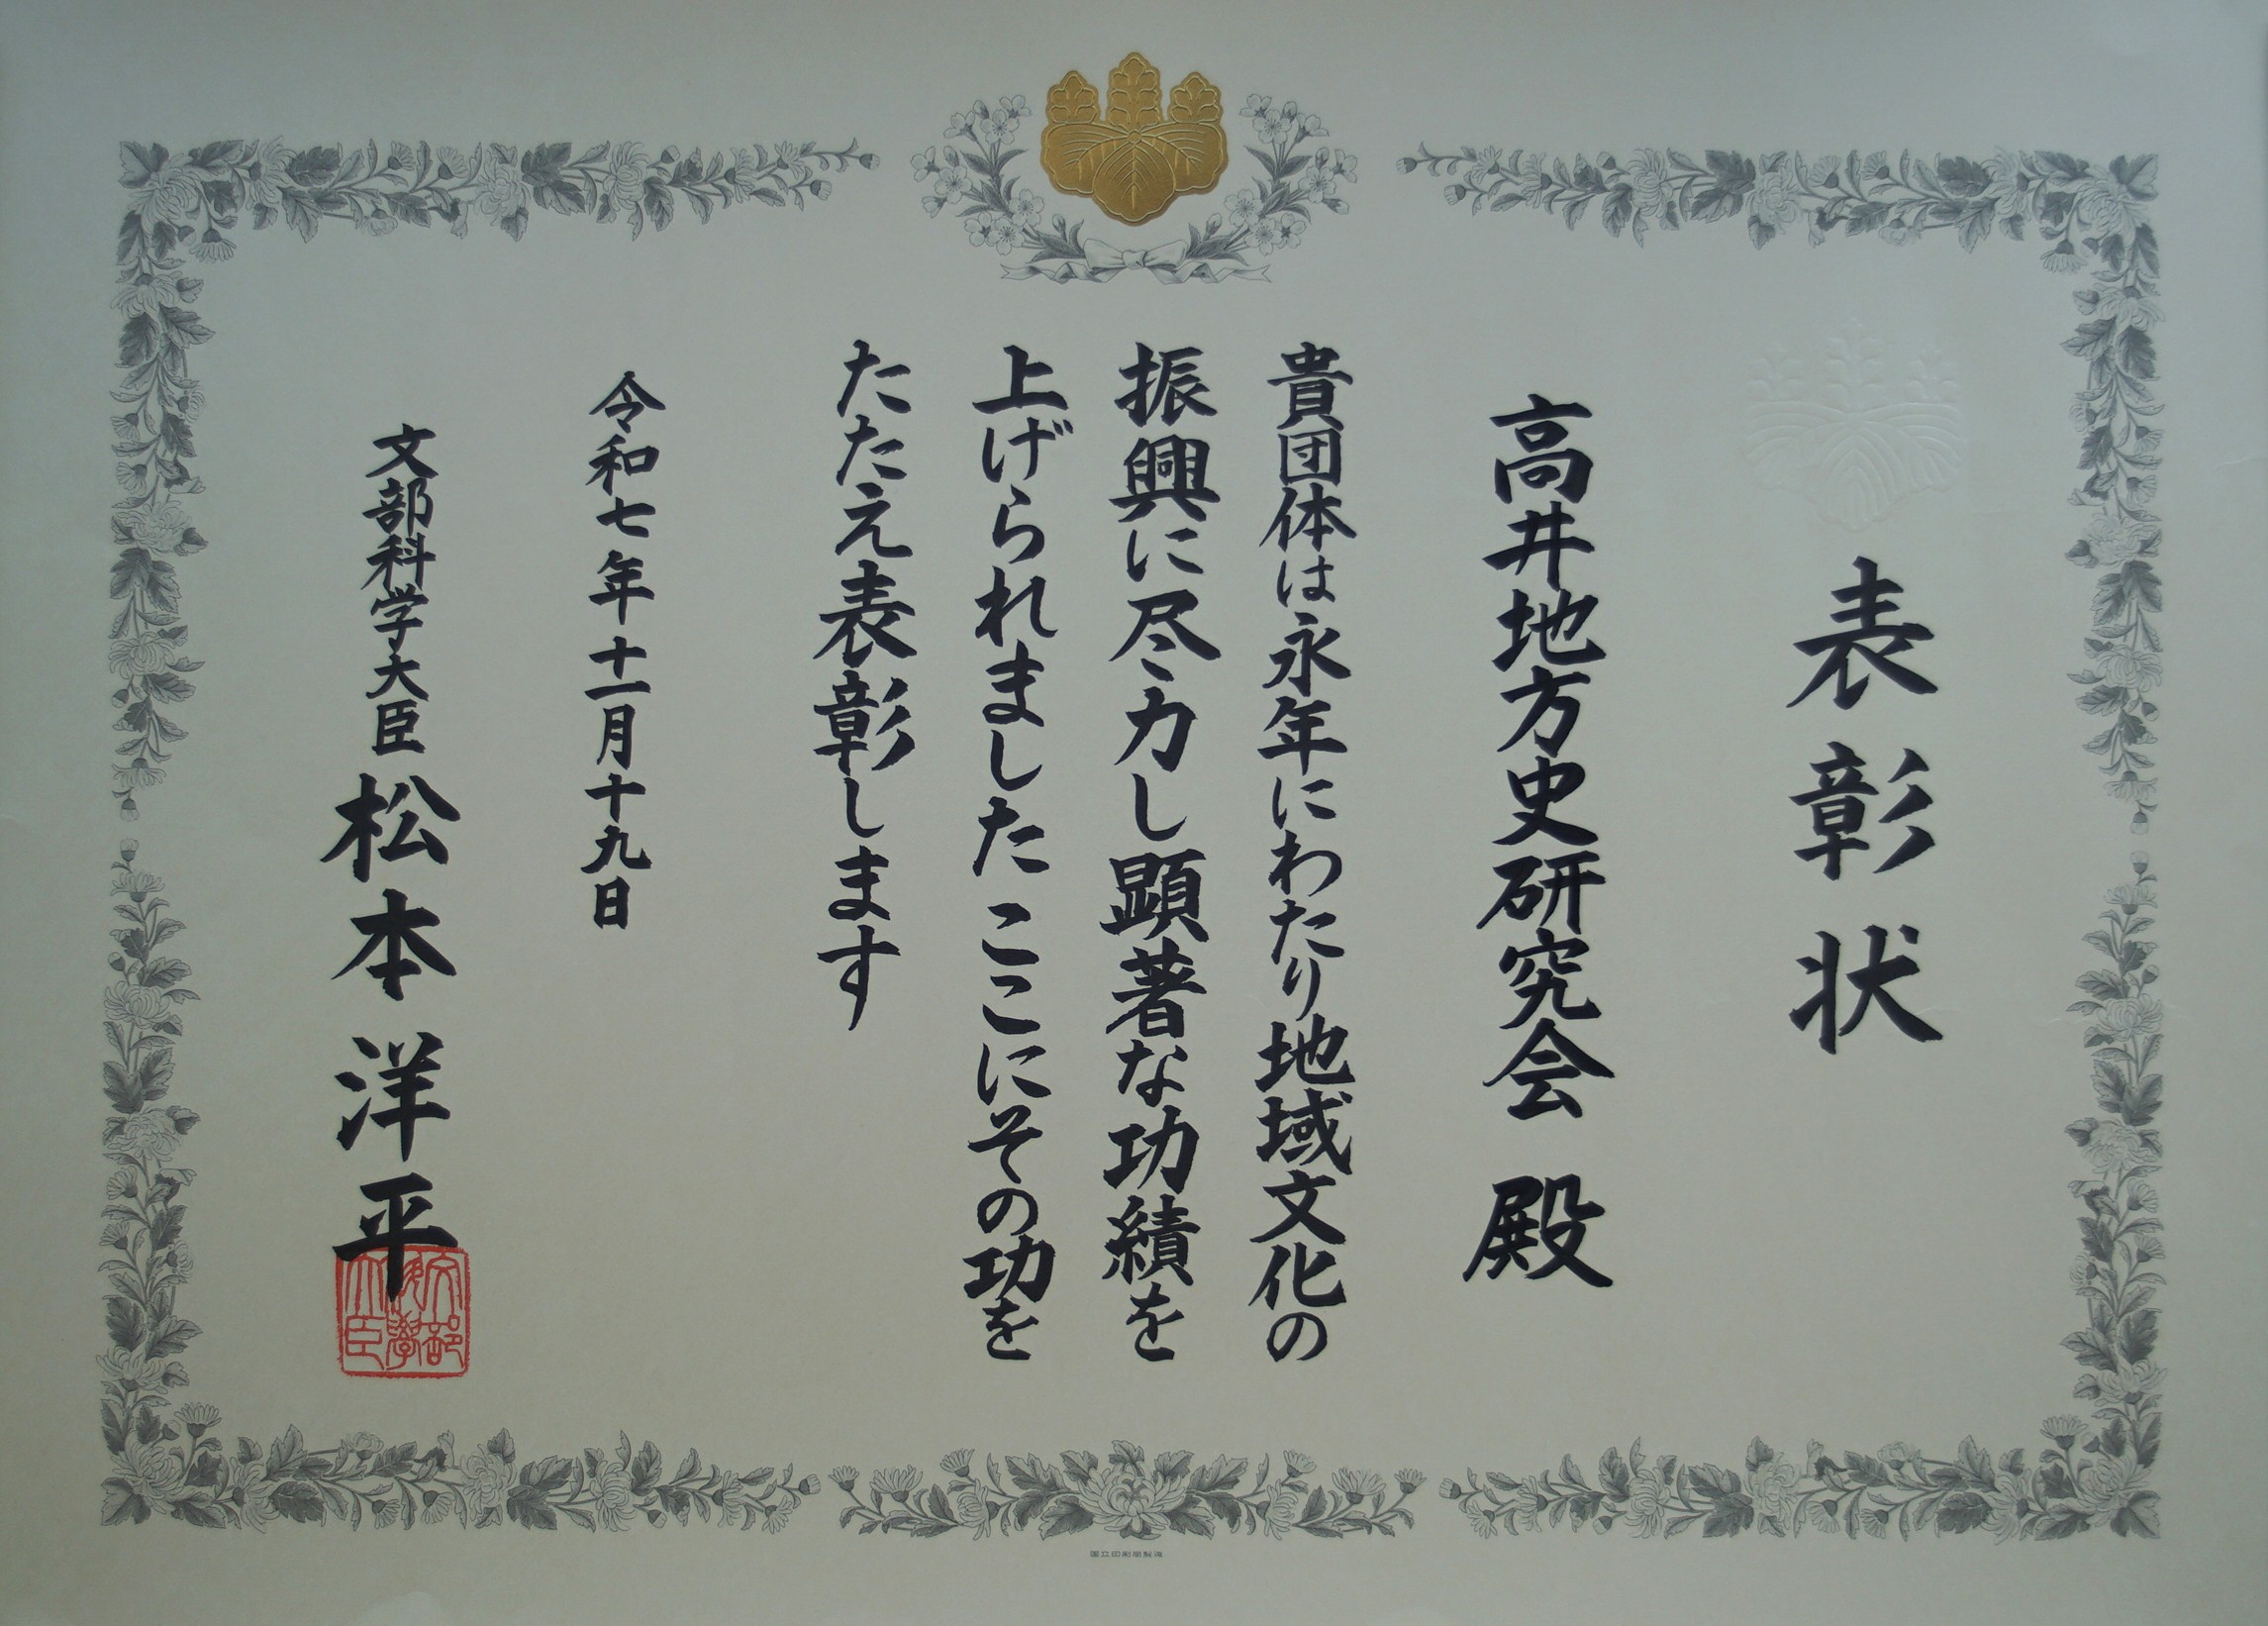 表彰状
高井地方史研究会 殿
貴団体は永年にわたり地域文化の
振興に尽力し顕著な功績を
上げられました ここにその功を
たたえ表彰します
令和七年十一月十九日
文部科学大臣 松本洋平
文部科学大臣
国立印刷局製造